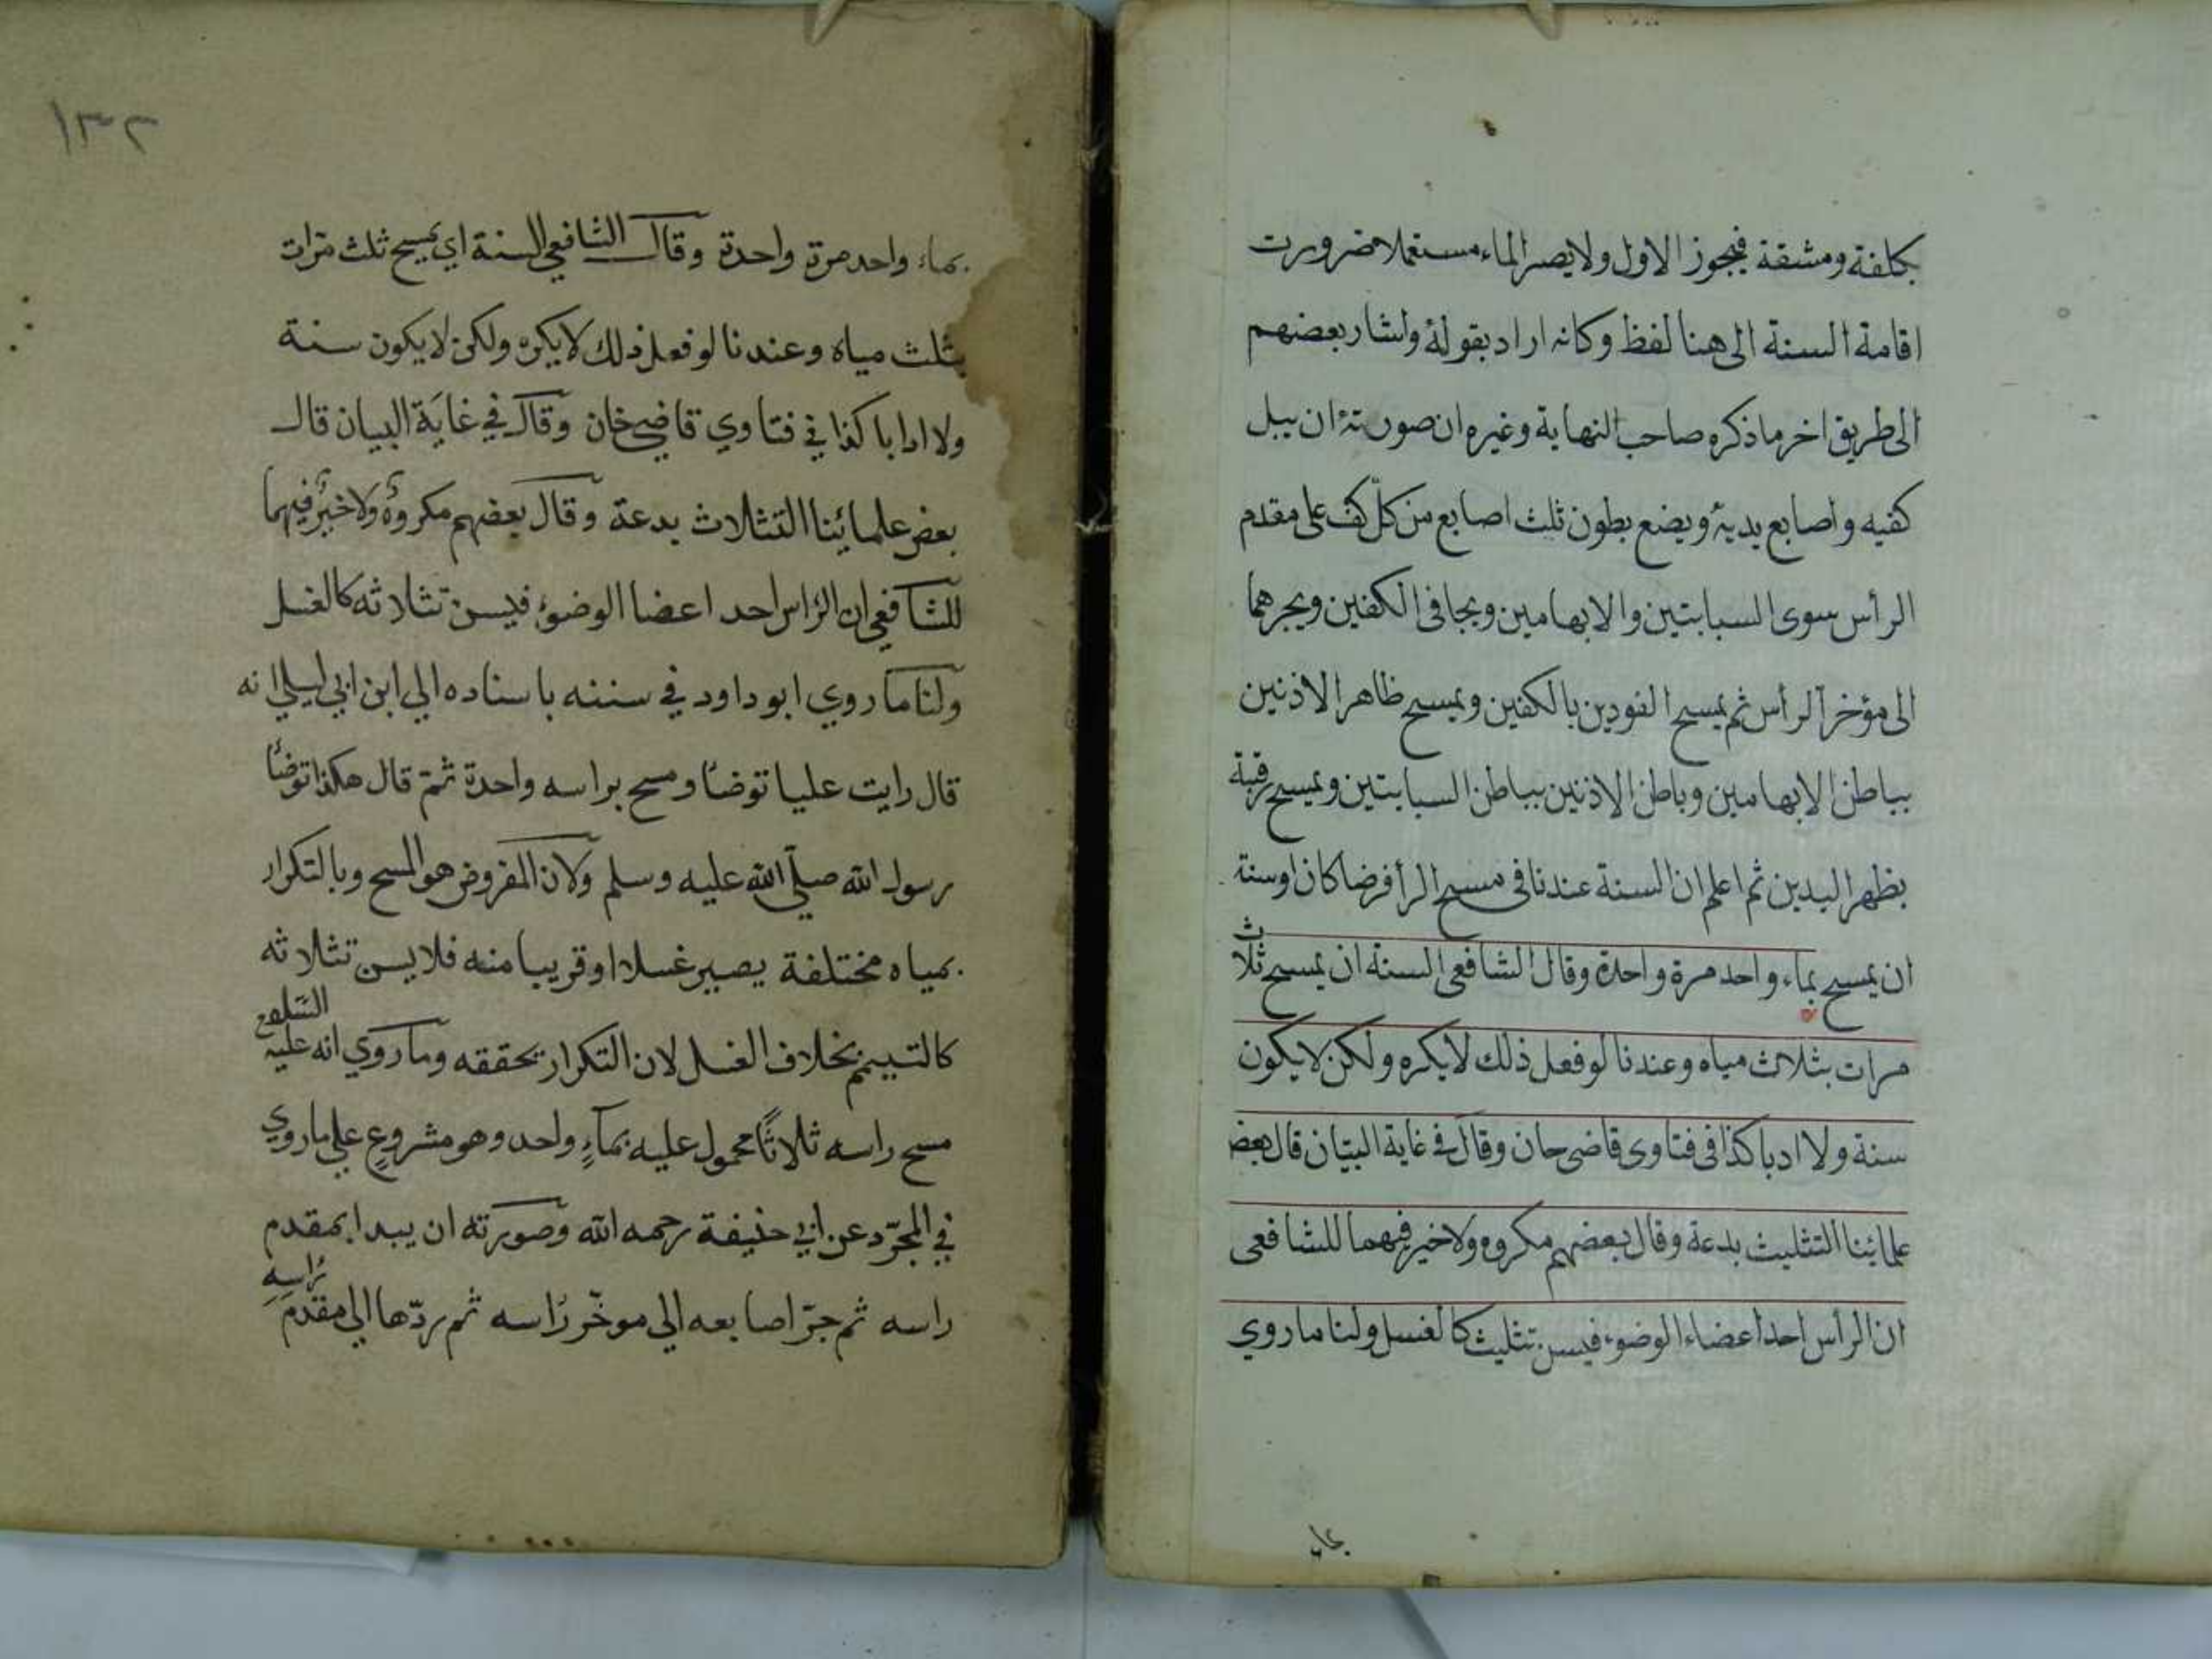 بكلفة ومشقة فيجوز الاول ولا يصير الماء مستعملا ضرورت
اقامة السنة الى هنا لفظ وكانه اراد بقوله واشار بعضهم
الى طريق اخر ما ذكره صاحب النهاية وغيره ان صورته ان يبل
كفيه واصابع يديه ويضع بطون ثلث اصابع من كل كف على مقدم
الرأس سوى السبابتين والابهامين ويجافى الكفين ويجرهما
الى مؤخر الرأس ثم يمسح الفودين بالكفين ويمسح ظاهر الاذنين
بباطن الابهامين وباطن الاذنين بباطن السبابتين ويمسح رقبة
بظهر اليدين ثم اعلم ان السنة عندنا فى مسح الرأ فرضا كان اوسنة
ان يمسح بماء واحد مرة واحدة وقال الشافعى السنة ان يمسح ثلاث
مرات بثلاث مياه وعندنا لو فعل ذلك لا يكره ولكن لا يكون
سنة ولا ادبا كذا فى فتاوى قاضى حان وقال فى غاية البيان قال بعض
علمائنا التثليث بدعة وقال بعضهم مكروه ولا خير فيهما للشافعى
ان الرأس احد اعضاء الوضوء فيسن تثليث كالغسل ولنا ما روي
بماء
١٣٢
بماء واحد مرة واحدة وقال الشافعي السنة اي يمسح ثلث مرات
بثلث مياه وعندنا لو فعل ذلك لا يكره ولكن لا يكون سنة
ولا ادابا كذا في فتاوي قاضيخان وقال في غاية البيان قال
بعض علمائينا التثلاث بدعة وقال بعضهم مكروه ولا خير فيهما
للشافعي ان الراس احد اعضا الوضوء فيسن تثلاثه كالغسل
ولنا ما روي ابو داود في سننه باسناده الي ابن ابي ليلي انه
قال رايت عليا توضأ ومسح براسه واحدة ثم قال هكذا توضأ
رسول الله صلي الله عليه وسلم ولان المفروض هو المسح وبالتكرار
بمياه مختلفة يصير غسلا او قريبا منه فلا يسن تثلاثه
كالتييمم بخلاف الغسل لان التكرار يحققه وما روي انه عليه السلام
مسح راسه ثلاثا محمول عليه بماء واحد وهو مشروع علي ما روي
في المجرد عن ابي حنيفة رحمه الله وصورته ان يبدا بمقدم
راسه ثم جر اصابعه الي موخر راسه ثم ردها الي مقدم راسه